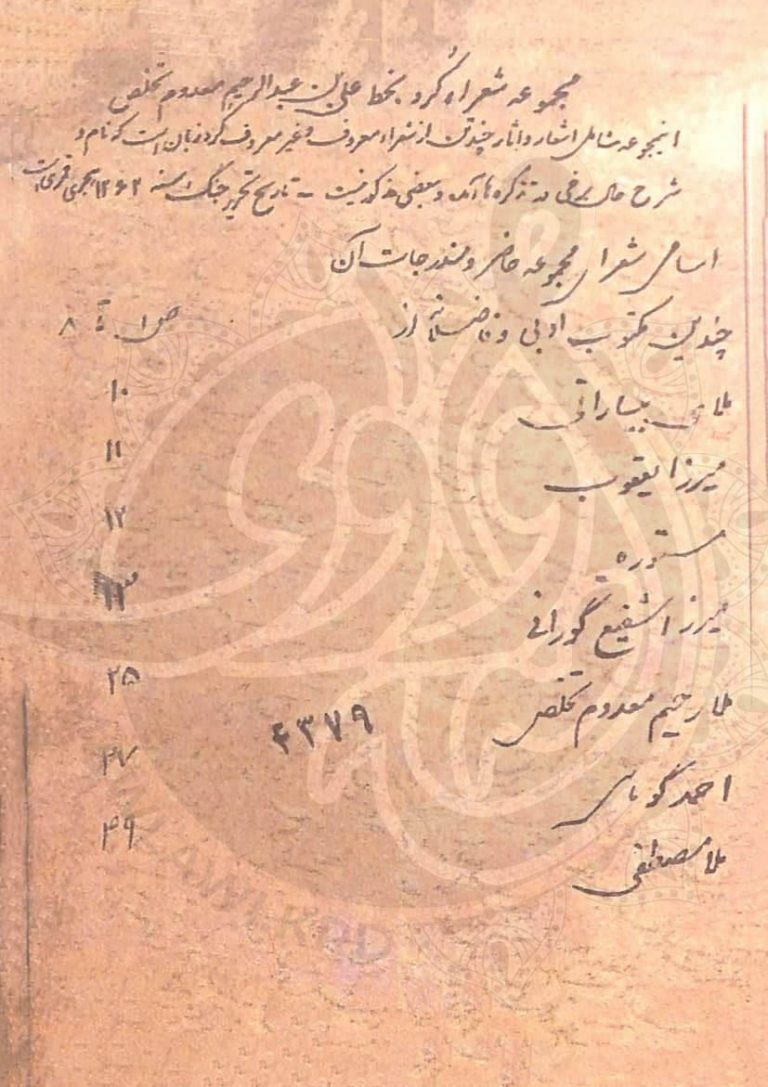 مجموعه شعراء کُرد بخط علی بن عبدالرحیم معدوم تخلص
اینمجموعه شامل اشعار و آثار چندتن از شعراء معروف و غیر معروف کرد زبان است که نام و
شرح حال برخی در تذکره ها آمده و بعضی مذکور نیست - تاریخ تحریر جنگ سنه ۱۲۶۲ هجری قمری است
اسامی شعرای مجموعه حاضر و مندرجات آن
چندین مکتوب ادبی و فاضلانه از ص ۱ تا ۸
ملای بیسارانی ۱۰
میرزا یعقوب ۱۱
مستوره ۱۲
میرزا شفیع گورانی ۱۳
ملا رحیم معدوم تخلص ۲۵
۴۳۷۹
احمد کوماسی ۴۷
ملا مصطفی ۴۹
MAWLAWI.KRD